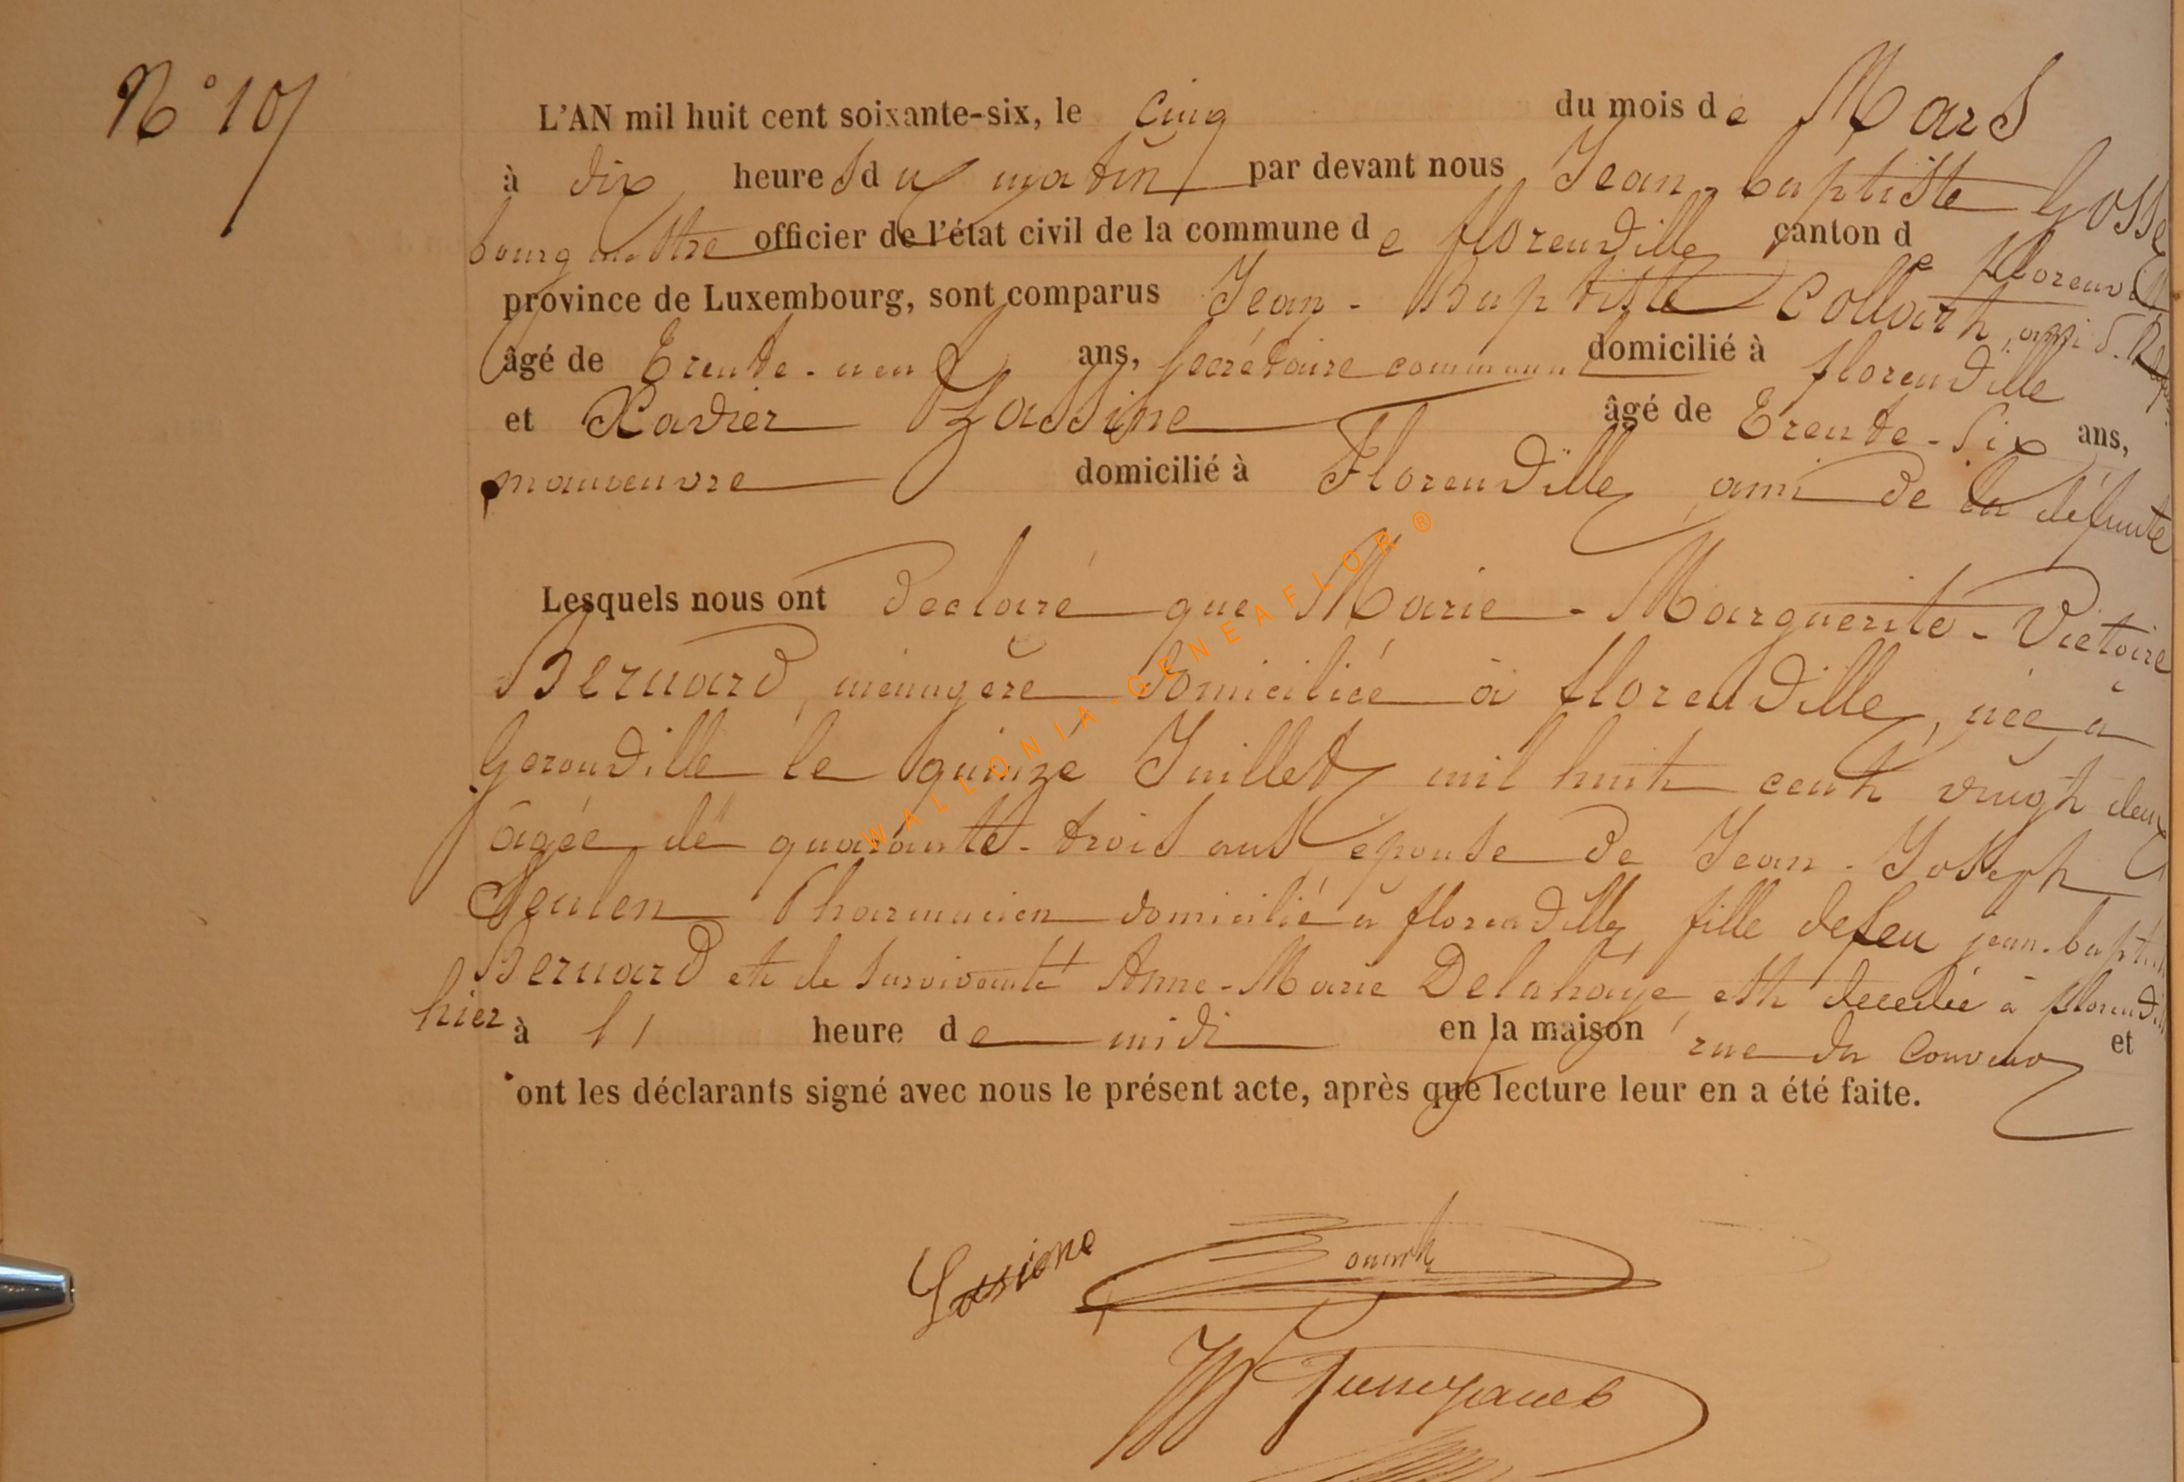 N° 10
L'AN mil huit cent soixante-six, le cinq du mois de Mars
à dix heures du matin par devant nous Jean-baptiste
bourgmestre officier de l'état civil de la commune de florenville canton de florenville
province de Luxembourg, sont comparus Jean-Baptiste Collart, ami d.
âgé de Trente-neuf ans, secrétaire communal domicilié à florenville
et Xavier Lassine âgé de Trente-six ans,
manoeuvre domicilié à Florenville, ami de la défunte
Lesquels nous ont declaré que Marie-Marguerite-Victoire
Bernard, ménagère domiciliée à florenville, née à
Gerouville le quinze Juillet mil huit cent vingt deux
âgée de quarante-trois ans épouse de Jean-Joseph
Pharmacien domicilié à florenville, fille de feu jean-baptiste
Bernard et de survivante Anne-Marie Delahaye, est decedée à florenville
hier à 11 heure de midi en la maison rue du et
ont les déclarants signé avec nous le présent acte, après que lecture leur en a été faite.
WALLONIA-GENEAFLOR ®
Lassine